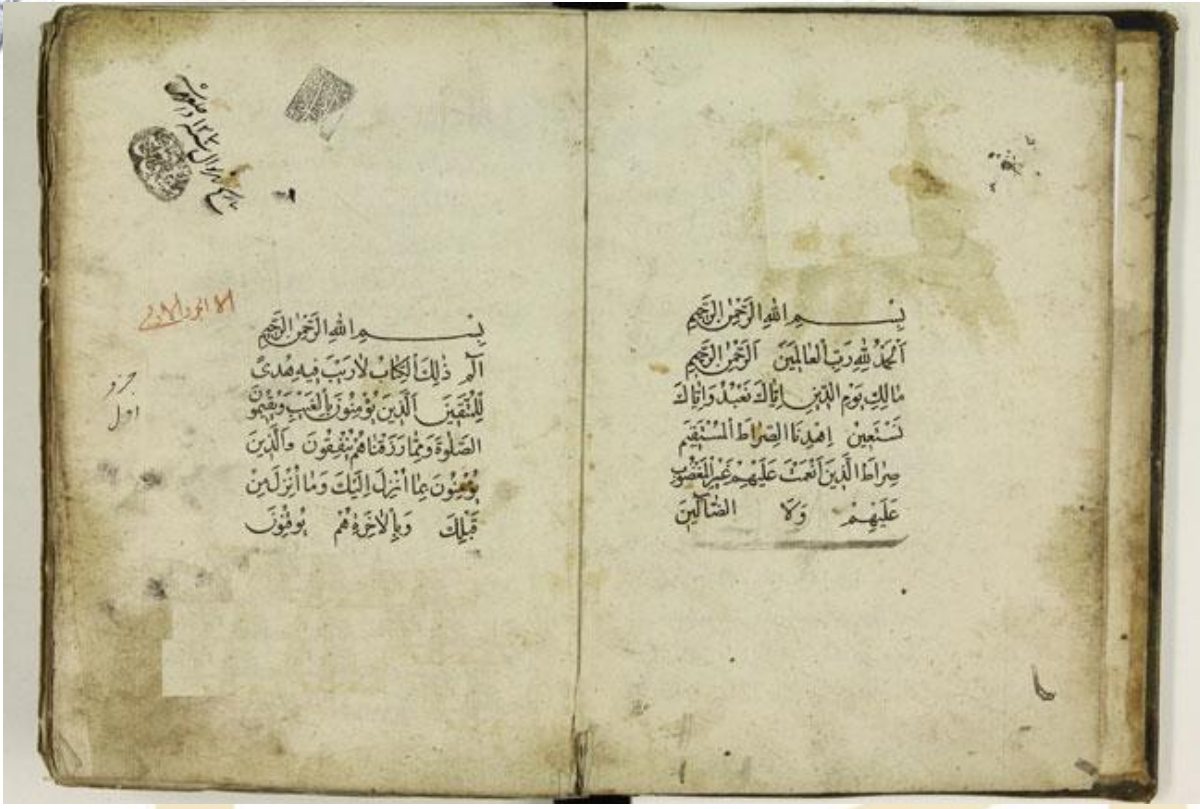 بِسْمِ اللهِ الرَّحْمٰنِ الرَّحِيمِ
اَلْحَمْدُ لِلّٰهِ رَبِّ الْعَالَمِينَ الرَّحْمٰنِ الرَّحِيمِ
مَالِكِ يَوْمِ الدِّينِ اِيَّاكَ نَعْبُدُ وَاِيَّاكَ
نَسْتَعِينُ اِهْدِنَا الصِّرَاطَ الْمُسْتَقِيمَ
صِرَاطَ الَّذِينَ اَنْعَمْتَ عَلَيْهِمْ غَيْرِ الْمَغْضُوبِ
عَلَيْهِمْ وَلَا الضَّالِّينَ
بِسْمِ اللهِ الرَّحْمٰنِ الرَّحِيمِ
الٓمٓ ذٰلِكَ الْكِتَابُ لَا رَيْبَ فِيهِ هُدىً
لِلْمُتَّقِينَ اَلَّذِينَ يُؤْمِنُونَ بِالْغَيْبِ وَيُقِيمُونَ
الصَّلٰوةَ وَمِمَّا رَزَقْنَاهُمْ يُنْفِقُونَ وَالَّذِينَ
يُؤْمِنُونَ بِمَا اُنْزِلَ اِلَيْكَ وَمَا اُنْزِلَ مِنْ
قَبْلِكَ وَبِالْاٰخِرَةِ هُمْ يُوقِنُونَ
جزو
اول